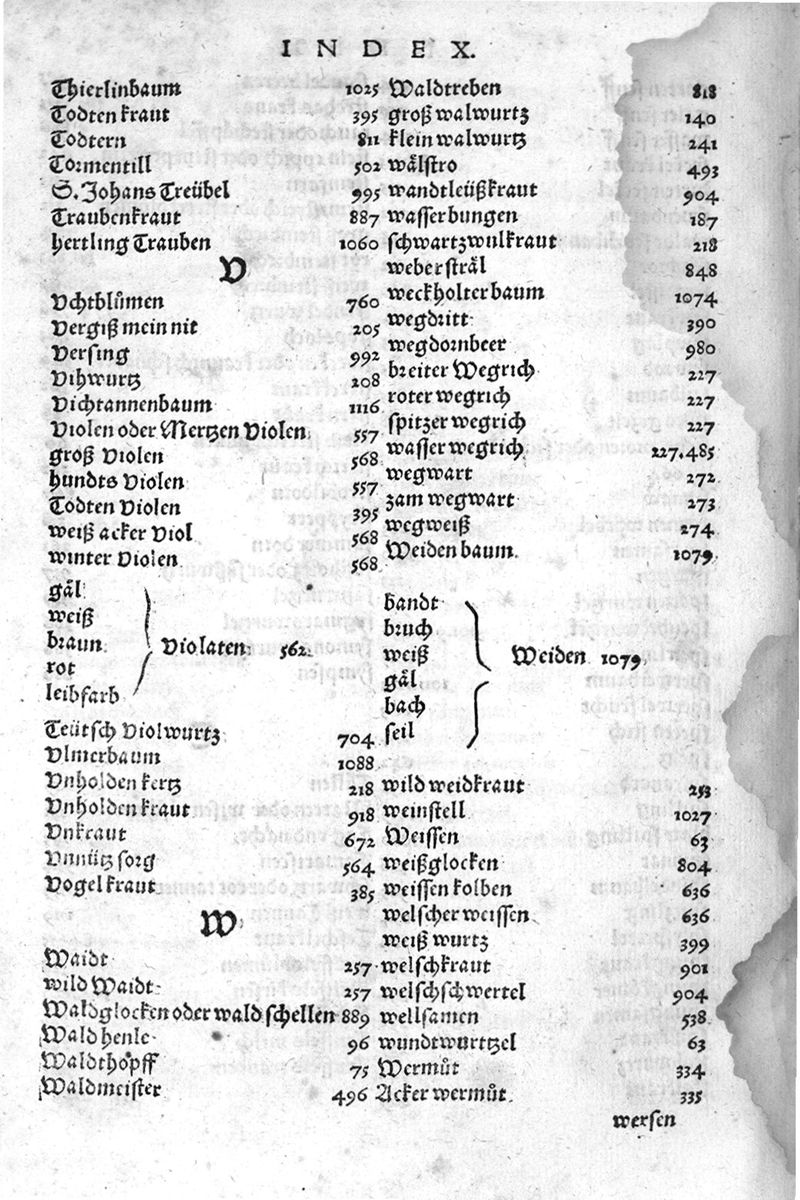 INDEX.
Thierlinbaum 1025
Todten kraut 395
Todtern 811
Tormentill 502
S. Johans Treübel 995
Traubenkraut 887
hertling Trauben 1060
V
Vchtblůmen 760
Vergiß mein nit 205
Versing 992
Vihwurtz 208
Vichtannenbaum 1116
Violen oder Mertzen Violen 557
groß Violen 568
hundts Violen 557
Todten Violen 395
weiß acker Viol 568
winter Violen 568
gäl
weiß
braun
rot
leibfarb
Violaten 562.
Teütsch Violwurtz 704
Vlmerbaum 1088
Vnholden kertz 218
Vnholden kraut 918
Vnkraut 672
Vnnütz sorg 564
Vogel kraut 385
W
Waidt 257
wild Waidt 257
Waldglocken oder wald schellen 889
Wald henle 96
Waldthopff 75
Waldmeister 496
Waldtreben 818
groß walwurtz 140
klein walwurtz 241
wälstro 493
wandtleüßkraut 904
wasserbungen 187
schwartzwulkraut 218
weber sträl 848
weckholterbaum 1074
wegdritt 390
wegdornbeer 980
breiter Wegrich 227
roter wegrich 227
spitzer wegrich 227
wasser wegrich 227.485
wegwart 272
zam wegwart 273
wegweiß 274
Weiden baum. 1079
bandt
bruch
weiß
gäl
bach
seil
Weiden 1079.
wild weidkraut 253
weinstell 1027
Weissen 63
weißglocken 804
weissen kolben 636
welscher weissen 636
weiß wurtz 399
welschkraut 901
welschschwertel 904
wellsamen 538
wundtwurtzel 63
Wermůt 334
Acker wermůt 335
wersen